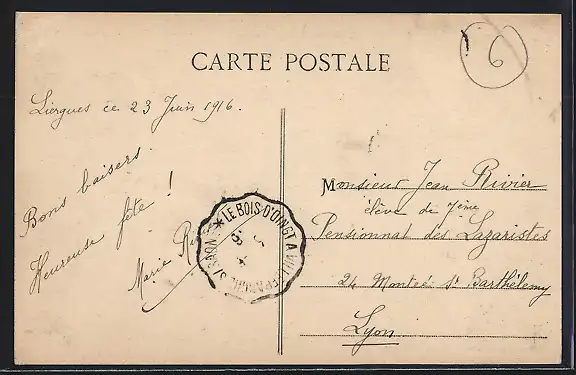 CARTE POSTALE
6
Liergues ce 23 Juin 1916.
Bons baisers.
Heureuse fête !
Marie
LE BOIS-D'OINGT A VILLEFRANCHE S/SAONE
Monsieur Jean Rivier
élève de 7ème
Pensionnat des Lazaristes
24 Montée St Barthélemy
Lyon